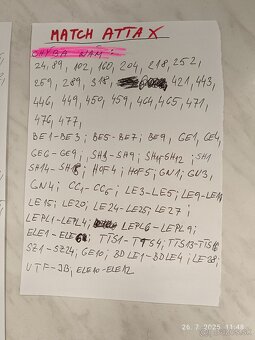 MATCH ATTAX
CHÝBA WAM:
24, 89, 102, 160, 204, 218, 252,
259, 289, 318, 421, 443,
446, 449, 450, 459, 464, 465, 471,
476, 477,
BE1-BE3; BE5-BE7; BE9, GE1, GE4,
GE6-GE9; SH3-SH9; SH11-SH12; SH1
SH14-SH; HOF1; HOF5; GN1; GN3,
GN4; CC1-CC5; LE3-LE5; LE9-LE11
LE15; LE20; LE24-LE25; LE27;
LEPL1-LEPL4; LEPL6-LEPL9;
ELE1-ELE; TTS1-TTS4; TTS13-TTS
SZ1-SZ24, GE10; BDLE1-BDLE4; LE28,
UTF-JB; ELE10-ELE12
26. 7. 2025 11:48